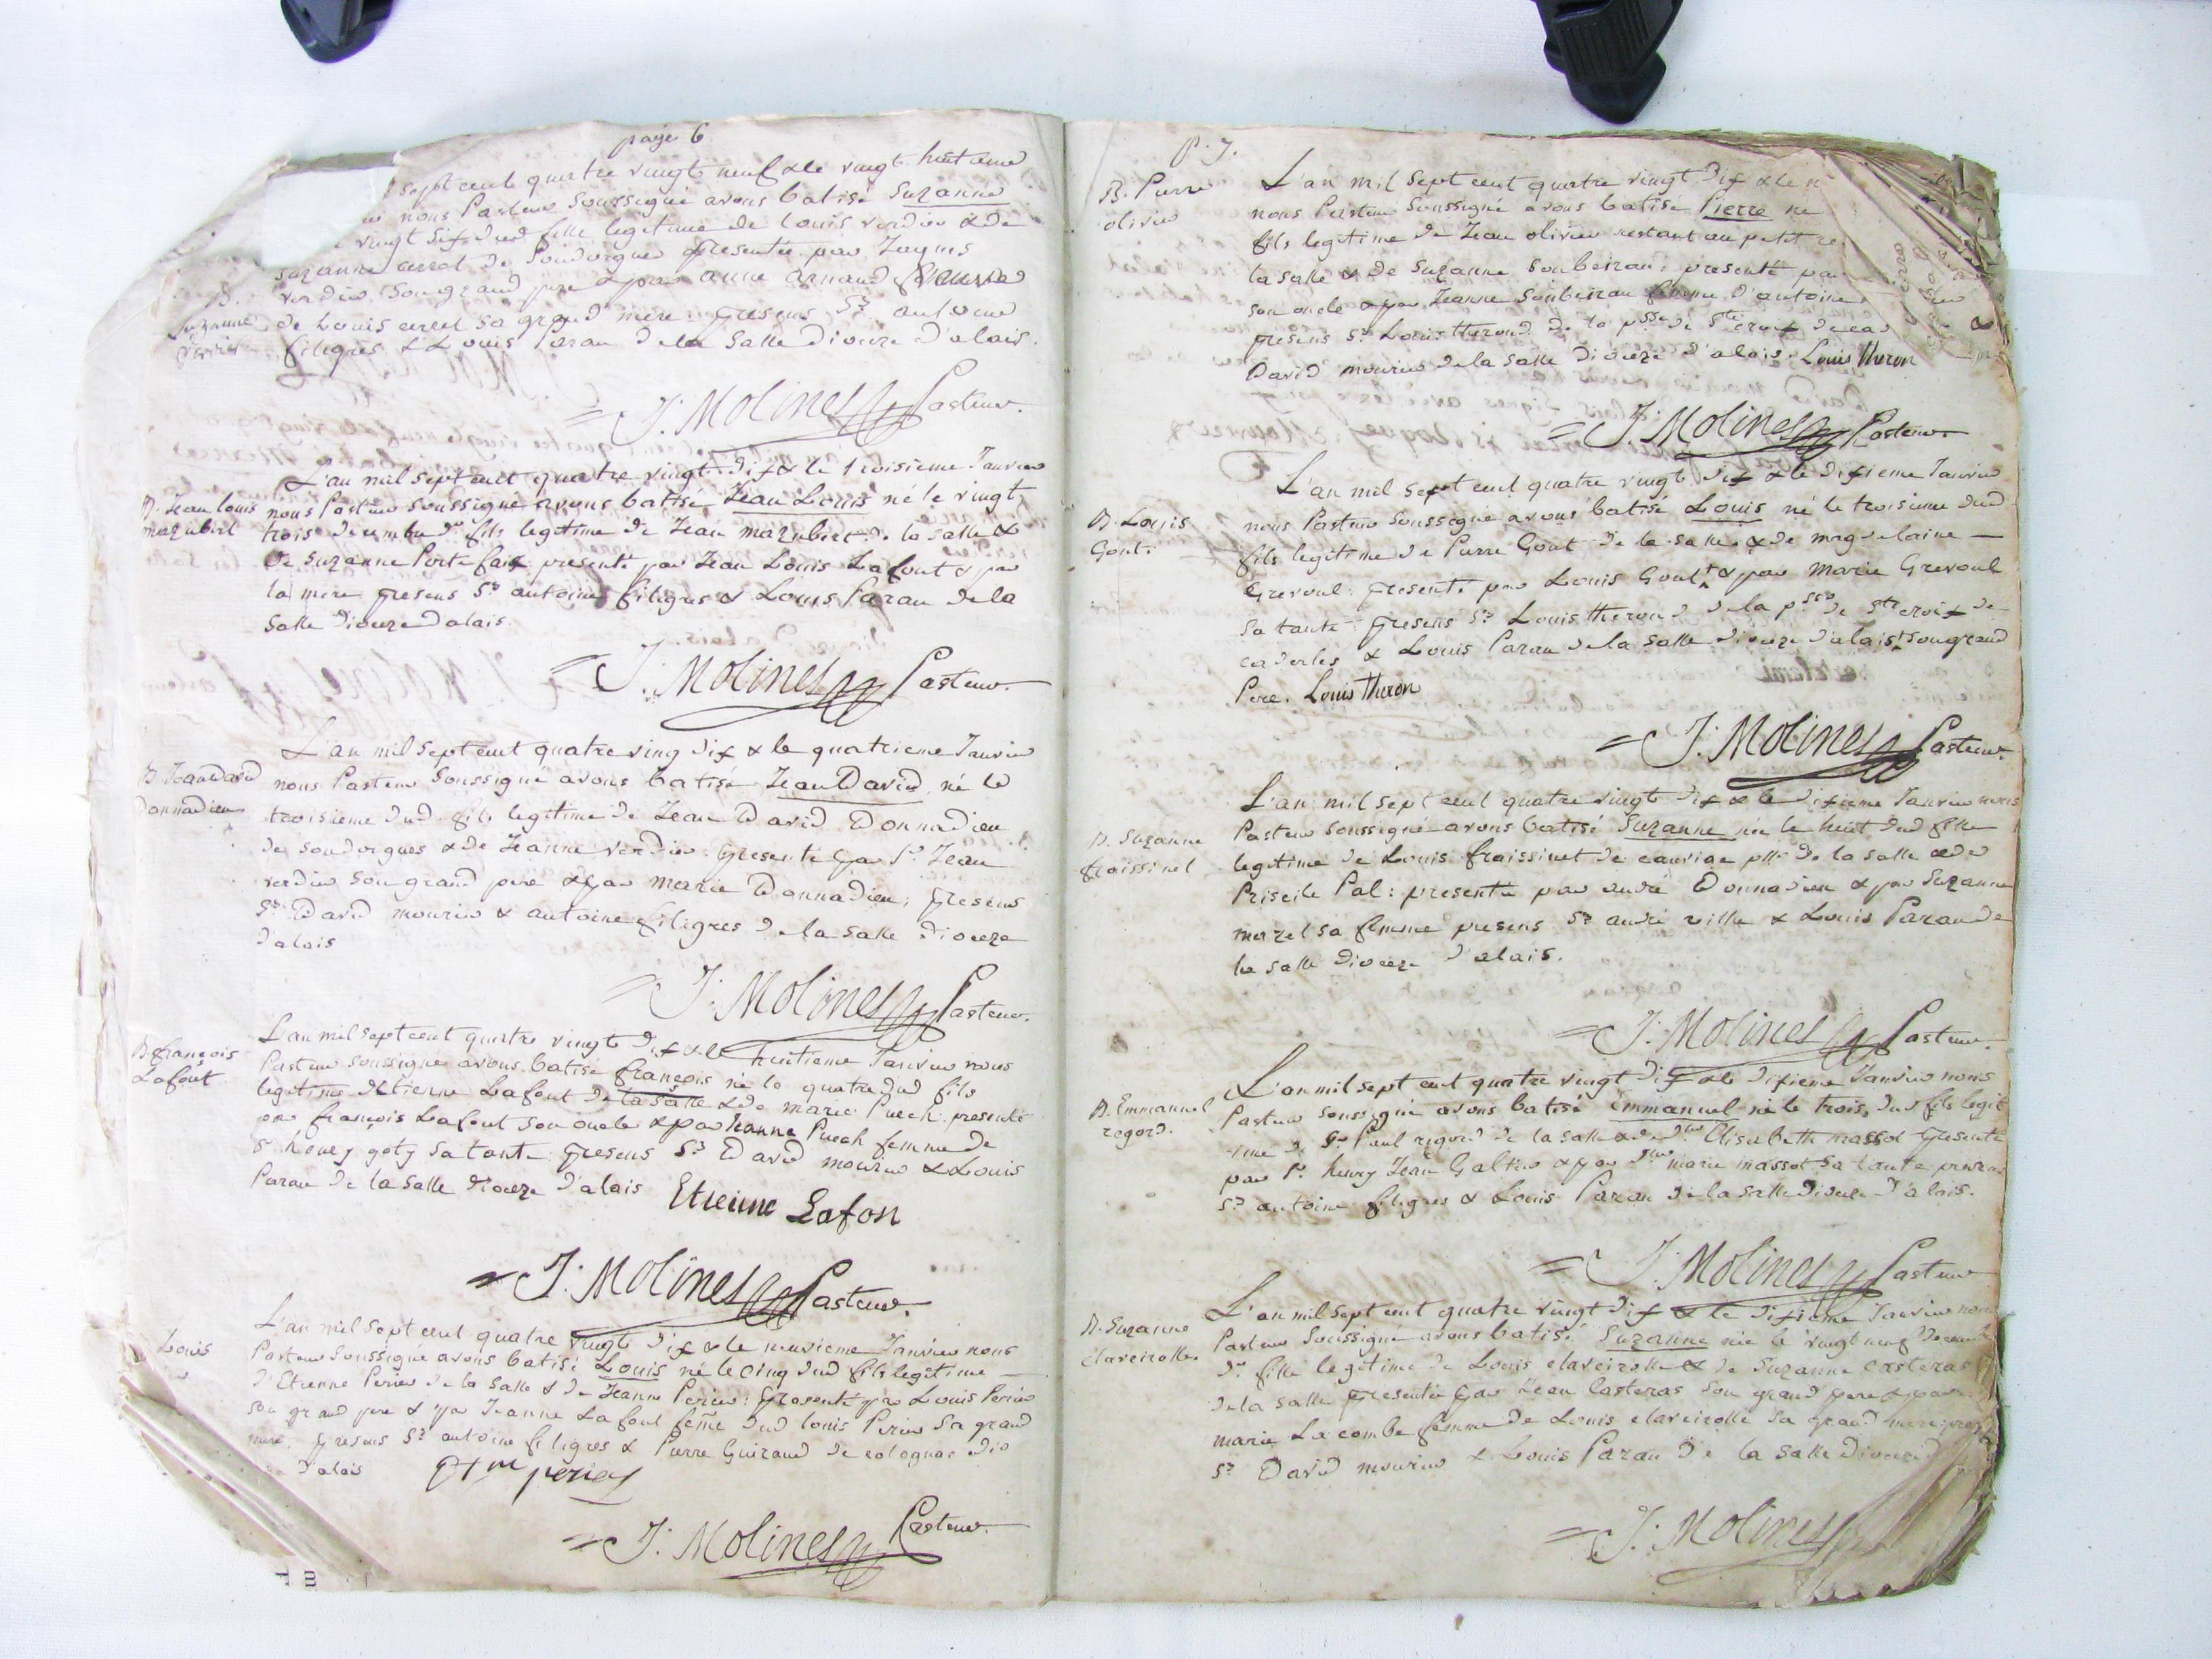 page 6
sept cent quatre vingt neuf & le vingt huitieme
nous Pasteur soussigné avons batisé Suzanne
vingt six dud fille legitime de Louis verdier & de
suzanne cerret de Soudorgues presentée par Jaques
verdier son grand pere & par anne arnaud
B. Suzanne verdier
de Louis cerret sa grand mere presens Srs antoine
filigres & Louis Paran de la Salle Dioceze d'alais.
= J: Molines Pasteur.
L'an mil sept cent quatre vingt dix & le troisieme Janvier
B. Jean Louis mazubert
nous Pasteur soussigné avons batisé Jean Louis né le vingt
trois decembre dr fils legitime de Jean mazubert de la salle &
de Suzanne Portefaix presenté par Jean Louis Lafont & par
la mere presens Srs antoine filigres & Louis Paran de la
Salle Dioceze Dalais.
= J: Molines Pasteur.
L'an mil sept cent quatre ving dix & le quatrieme Janvier
B. Jean David Donnadieu
nous Pasteur Soussigné avons batisé Jean David né le
troisieme dud fils legitime de Jean David Donnadieu
de soudorgues & de Jeanne verdier: presenté par Sr Jean
verdier son grand pere & par marie Donnadieu, presens
Srs David mourier & antoine filigres de la salle dioceze
d'alais
= J: Molines Pasteur.
L'an mil sept cent quatre vingt dix & le huitieme Janvier nous
B. françois Lafont
Pasteur soussigné avons batisé françois né le quatre dud fils
legitime d'Etienne Lafont de la Salle & de marie Puech: presenté
par françois Lafont son oncle & par Jeanne Puech femme de
Sr henry goty sa tante presens Srs David mourier & Louis
Paran de la Salle dioceze d'alais Etienne Lafon
= J: Molines Pasteur.
L'an mil sept cent quatre vingt dix & le neuvieme Janvier nous
Louis
Pasteur soussigné avons batisé Louis né le cinq dud fils legitime
d'Etienne Perier de la Salle & de Jeanne Perier: presenté par Louis Perier
son grand pere & par Jeanne Lafont feme dud louis Perier sa grand
mere, presens Srs antoine filigres & Pierre Guiraud de colognac dio
d'alais
= J: Molines Pasteur.
p. 7.
B. Pierre olivier
L'an mil sept cent quatre vingt dix & le n
nous Pasteur Soussigné avons batisé Pierre né
fils legitime de Jean olivier restant au petit
la salle & de Suzanne Soubeiran: presenté par
son oncle & par Jeanne Soubeiran femme d'antoine
presens Sr Louis theron de la psse de Ste croix de ca
David mourier de la Salle dioceze d'alais. Louis theron
= J: Molines Pasteur
L'an mil sept cent quatre vingt dix & le dixieme Janvier
B. Louis Gout.
nous Pasteur Soussigné avons batisé Louis né le troisieme dud
fils legitime de Pierre Gout de la salle & de magdelaine
Grevoul: presenté par Louis Gout + & par marie Grevoul
sa tante presens Srs Louis theron de la psse de Ste croix de
caderles & Louis Paran de la Salle dioceze d'alais + son grand
Pere. Louis theron
= J: Molines Pasteur
L'an mil sept cent quatre vingt dix & le dixieme Janvier nous
B. Suzanne fraissinet
Pasteur soussigné avons batisé Suzanne née le huit dud fille
legitime de Louis fraissinet de cauviac psse de la salle & de
Priscile Pal: presentée par andré Donnadieu & par Suzanne
mazel sa femme presens Srs andré ville & Louis Paran de
la salle dioceze d'alais.
= J: Molines Pasteur.
L'an mil sept cent quatre vingt dix & le dixieme Janvier nous
B. Emmanuel regord.
Pasteur soussigné avons batisé Emmanuel né le trois dud fils legit
ime de Sr Paul regord de la salle & de dlle Elisabeth massot presenté
par Sr henry Jean Galtier & par dlle marie massot sa tante presens
Srs antoine filigres & Louis Paran de la salle dioceze d'alais.
= J: Molines Pasteur
L'an mil sept cent quatre vingt dix & le dixieme Janvier nous
B. Suzanne Claveirolle
Pasteur Soussigné avons batisé Suzanne née le vingt neuf decembre
dr fille legitime de Louis claveirolle & de Suzanne casteras
de la salle presentée par Jean Casteras son grand pere & par
marie Lacombe femme de Louis claveirolle sa grand mere: pres
Srs David mourier & Louis Paran de la Salle dioceze
= J: Molines